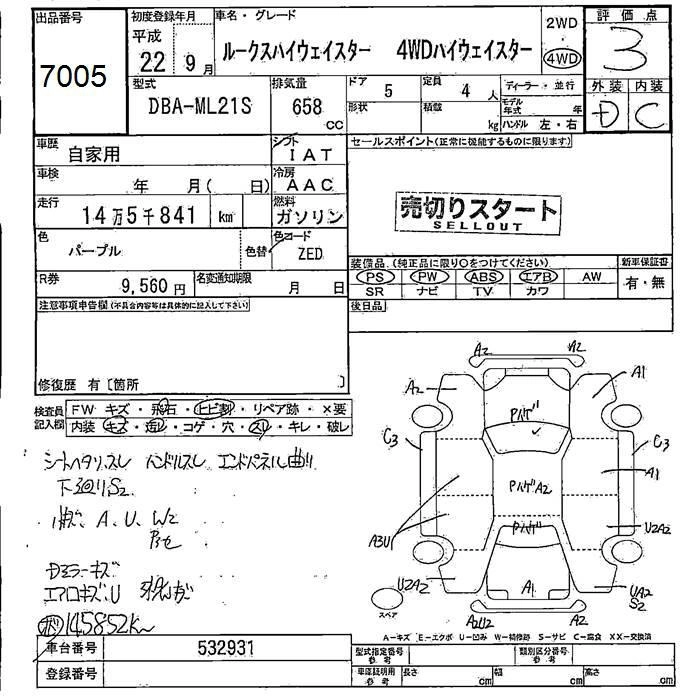 出品番号
7005
初度登録年月
平成
22 9月
車名・グレード
ルークスハイウェイスター 4WDハイウェイスター
2WD
4WD
評価点
3
型式
DBA-ML21S
排気量
658 CC
ドア
5
定員
4 人
形状
積載
kg
ディーラー・並行
モデル年式 年
ハンドル 左・右
外装 内装
D C
車歴
自家用
シフト
IAT
車検
年 月( 日)
冷房
AAC
走行
14万5千841 km
燃料
ガソリン
色
パープル
色替
色コード
ZED
R券
9,560円
名変通知期限
月 日
セールスポイント(正常に機能するものに限ります)
売切りスタート
SELLOUT
装備品(純正品に限り○をつけてください)
PS PW ABS エアB AW
SR ナビ TV カワ
新車保証書
有・無
注意事項申告欄(不具合内容等は具体的に記入して下さい)
後日品
修復歴 有〔箇所 〕
検査員記入欄
FW キズ・飛石・ヒビ割・リペア跡・×要
内装 キズ・汚レ・コゲ・穴・スリ・キレ・破レ
シートヘタリ、スレ ハンドルスレ エンドパネル曲り
下廻りS2
小キズ、A、U、W2
Dミラーキズ
エアロキズ、U
145852K
A2 A2
A2 A1
Pハゲ
C3 C3
A1
PハゲA2
A3U1 U2A2
Pハゲ
U2A2 A1 UA2
S2
スペア
A2U2 A2
A-キズ E-エクボ U-凹み W-補修跡 S-サビ C-腐食 XX-交換済
車台番号
532931
登録番号
型式指定番号
参考
類別区分番号
参考
車庫証明用
参考
長さ cm 幅 cm 高さ cm